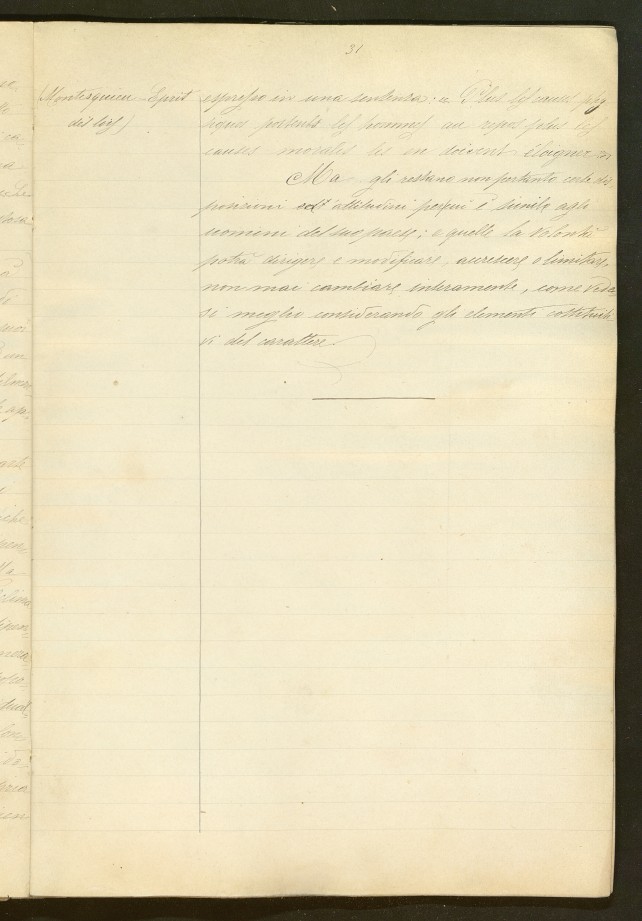 31
Montesquieu - Esprit
des lois)
espresso in una sentenza: « Plus les causes phy
siques portent les hommes au repos, plus les
causes morales les en doivent éloigner »
Ma gli restano non pertanto certe dis
posizioni ed attitudini per cui è simile agli
uomini del suo paese; e quelle la volontà
potrà dirigere e modificare, accrescere o limitare,
non mai cambiare interamente, come vedre
si meglio considerando gli elementi costituti
vi del carattere.